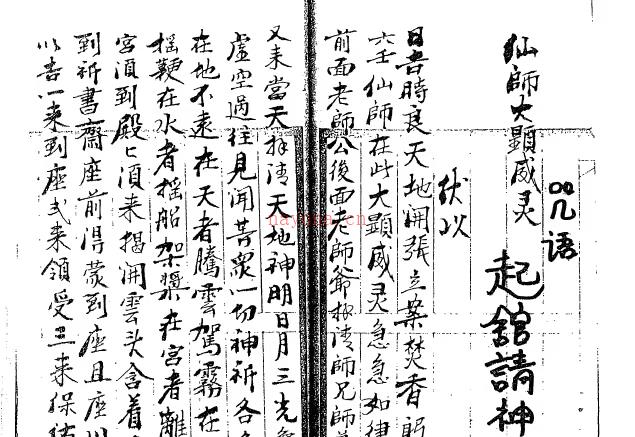 咒语
起舘請神
仙師大顯威灵
伏以
日吉時良天地開張立案焚香
六壬仙師在此大顯威灵急急如律
前面老師公後面老師爺拜請師兄師
又来當天拜請天地神明日月三光
虚空過往見聞菩眾一切神祈各
在地不遠在天者騰雲駕霧在
揺鞕在水者揺船架槳在宮者離
宮須到殿匕須来揭開雲头含着
到祈書齋座前得蒙到座且座
以吉一来到座弍来領受三来保